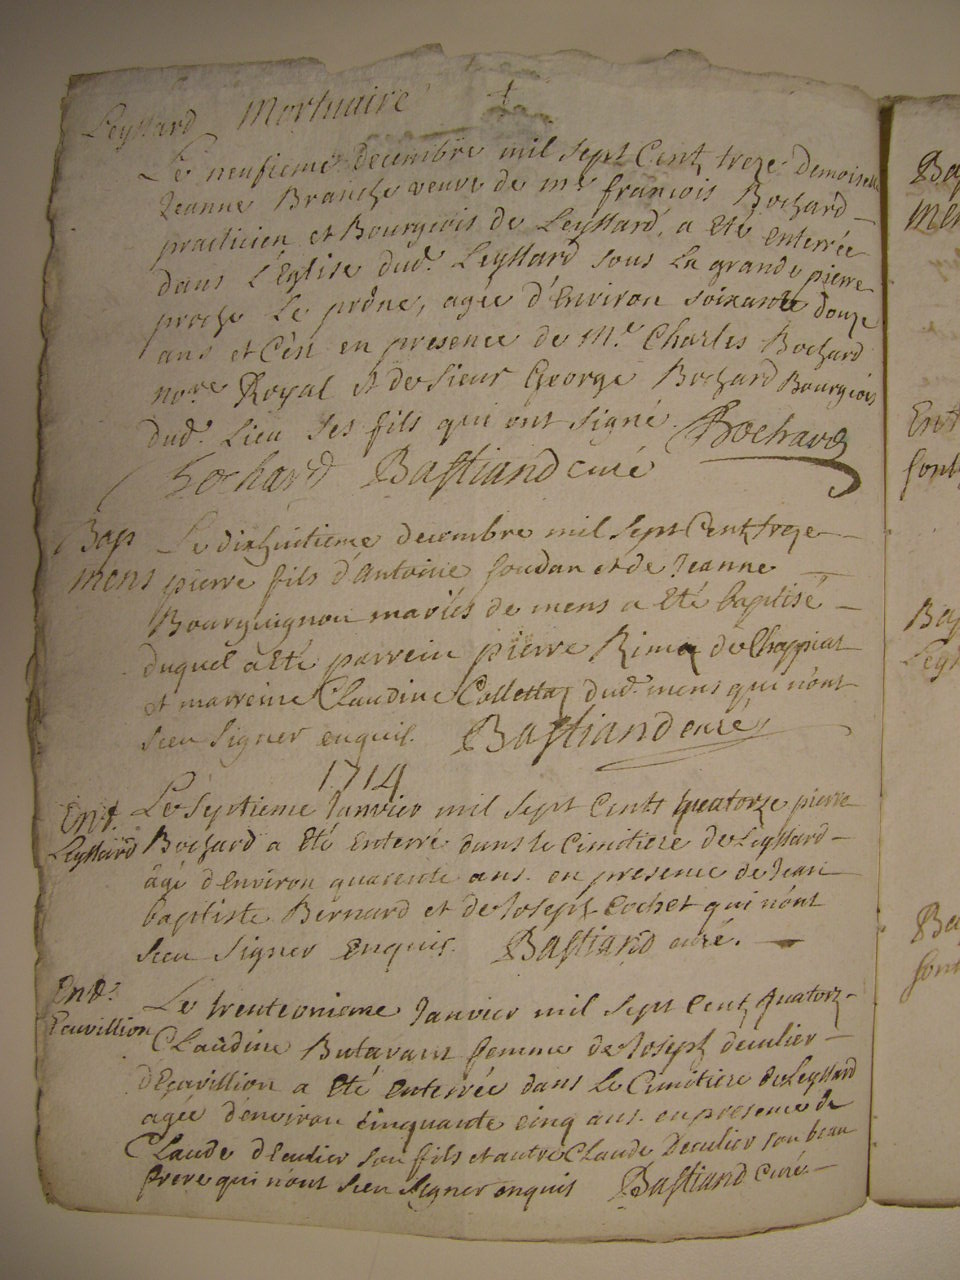 Leyssard Mortuaire
Le neufieme decembre mil sept Cent treze demoiselle
Jeanne Branche veuve de mr françois Bochard
practicien et Bourgeois de Leyssard, a eté enterrée
dans l'Eglise dud. Leyssard sous La grande pierre
proche Le prône, agée d'Environ soixante douze
ans et C'en en presence de Mr. Charles Bochard
nore Royal et de sieur George Bochard Bourgeois
dud. Lieu ses fils qui ont signé. Bochard
Bochard Bastiand curé
Bap Le dixhuitieme decembre mil sept Cent treze
mens pierre fils d'antoine foudan et de Jeanne
Bourguignon mariés de mens a Eté baptisé
duquel a Eté parrein pierre de Chappiat
et marreine Claudine Collettaz dud. mens qui n'ont
sceu signer enquis. Bastiand curé
1714
Ent. Le septieme Janvier mil sept Centt quatorze pierre
Leyssard Bochard a Eté Enterré dans le Cimitiere de Leyssard
âgé d'Environ quarente ans. en presence de Jean
baptiste Bernard et de Joseph cochet qui n'ont
sceu signer Enquis. Bastiand curé.
Ent. Le trenteonieme Janvier mil sept Cent quatorz
Ecuvillion Claudine Butavant femme de Joseph decultier
d'Ecuvillion a Eté enterrée dans Le Cimitiere de Leyssard
agée d'environ cinquante cinq ans. en presence de
Claude son fils et autre Claude son beau
frere qui n'ont sceu signer enquis Bastiand Curé
Bap
Men
Ent
font
Ba
Leys
Ba
font